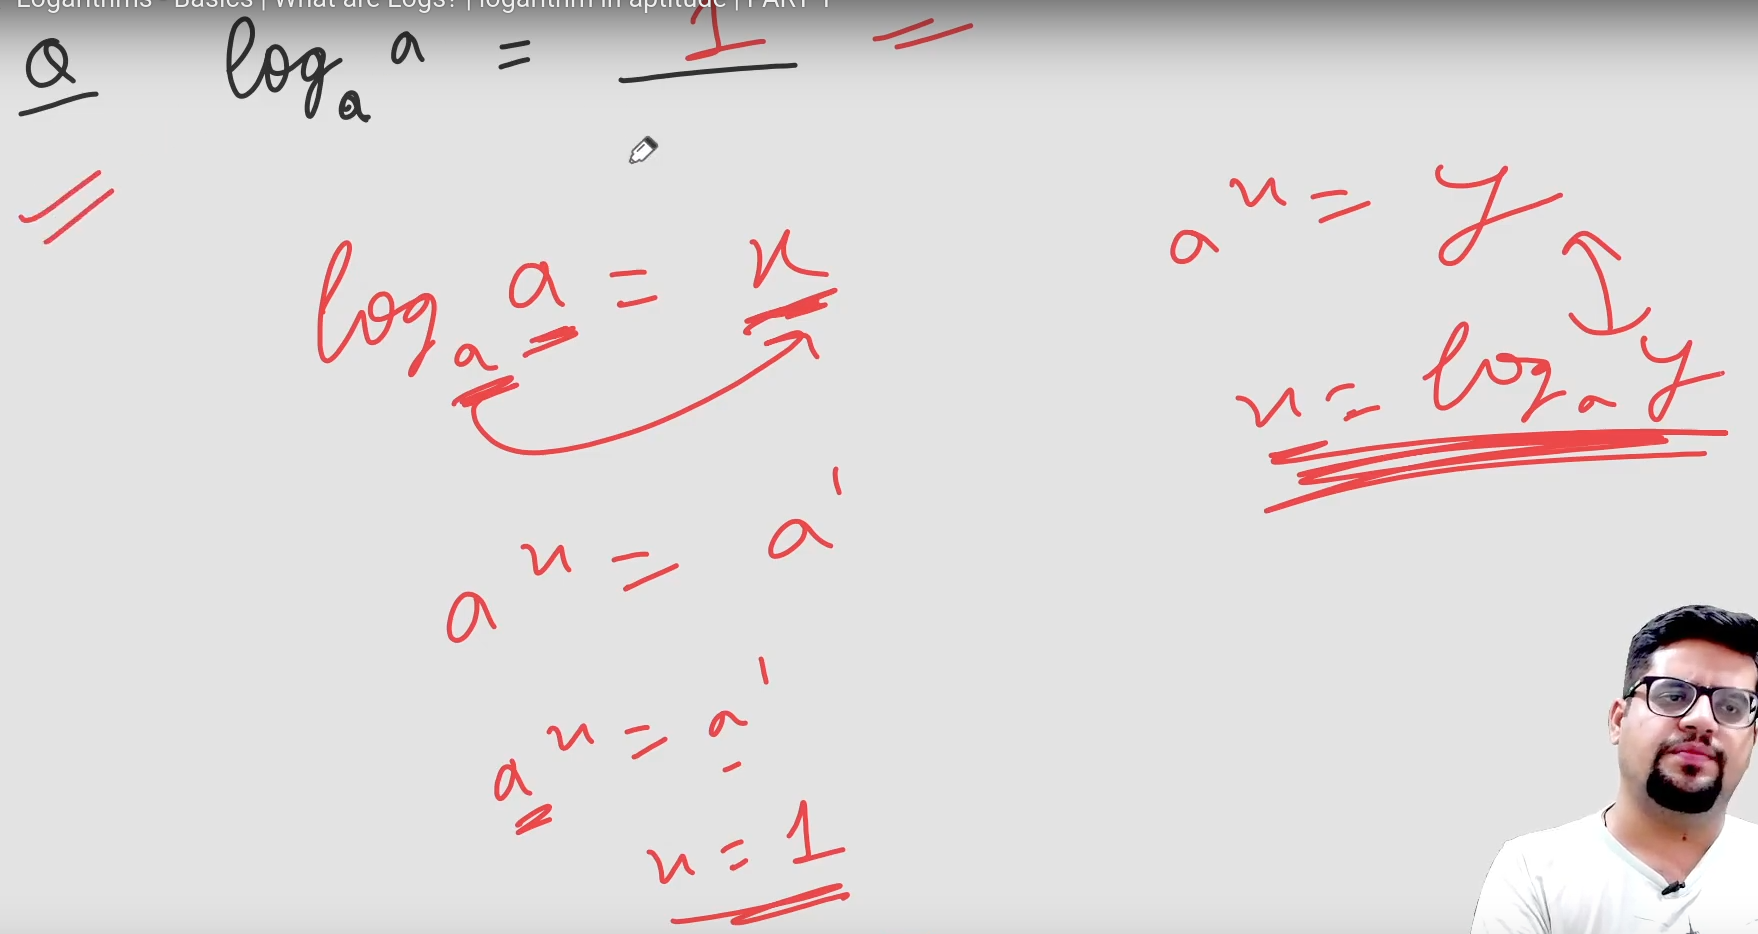 Logarithms - Basics | What are Logs? | logarithm in aptitude | PART 1
Q logₐ a = 1
logₐ a = x
aˣ = a¹
aˣ = a¹
x = 1
aˣ = y
x = logₐ y